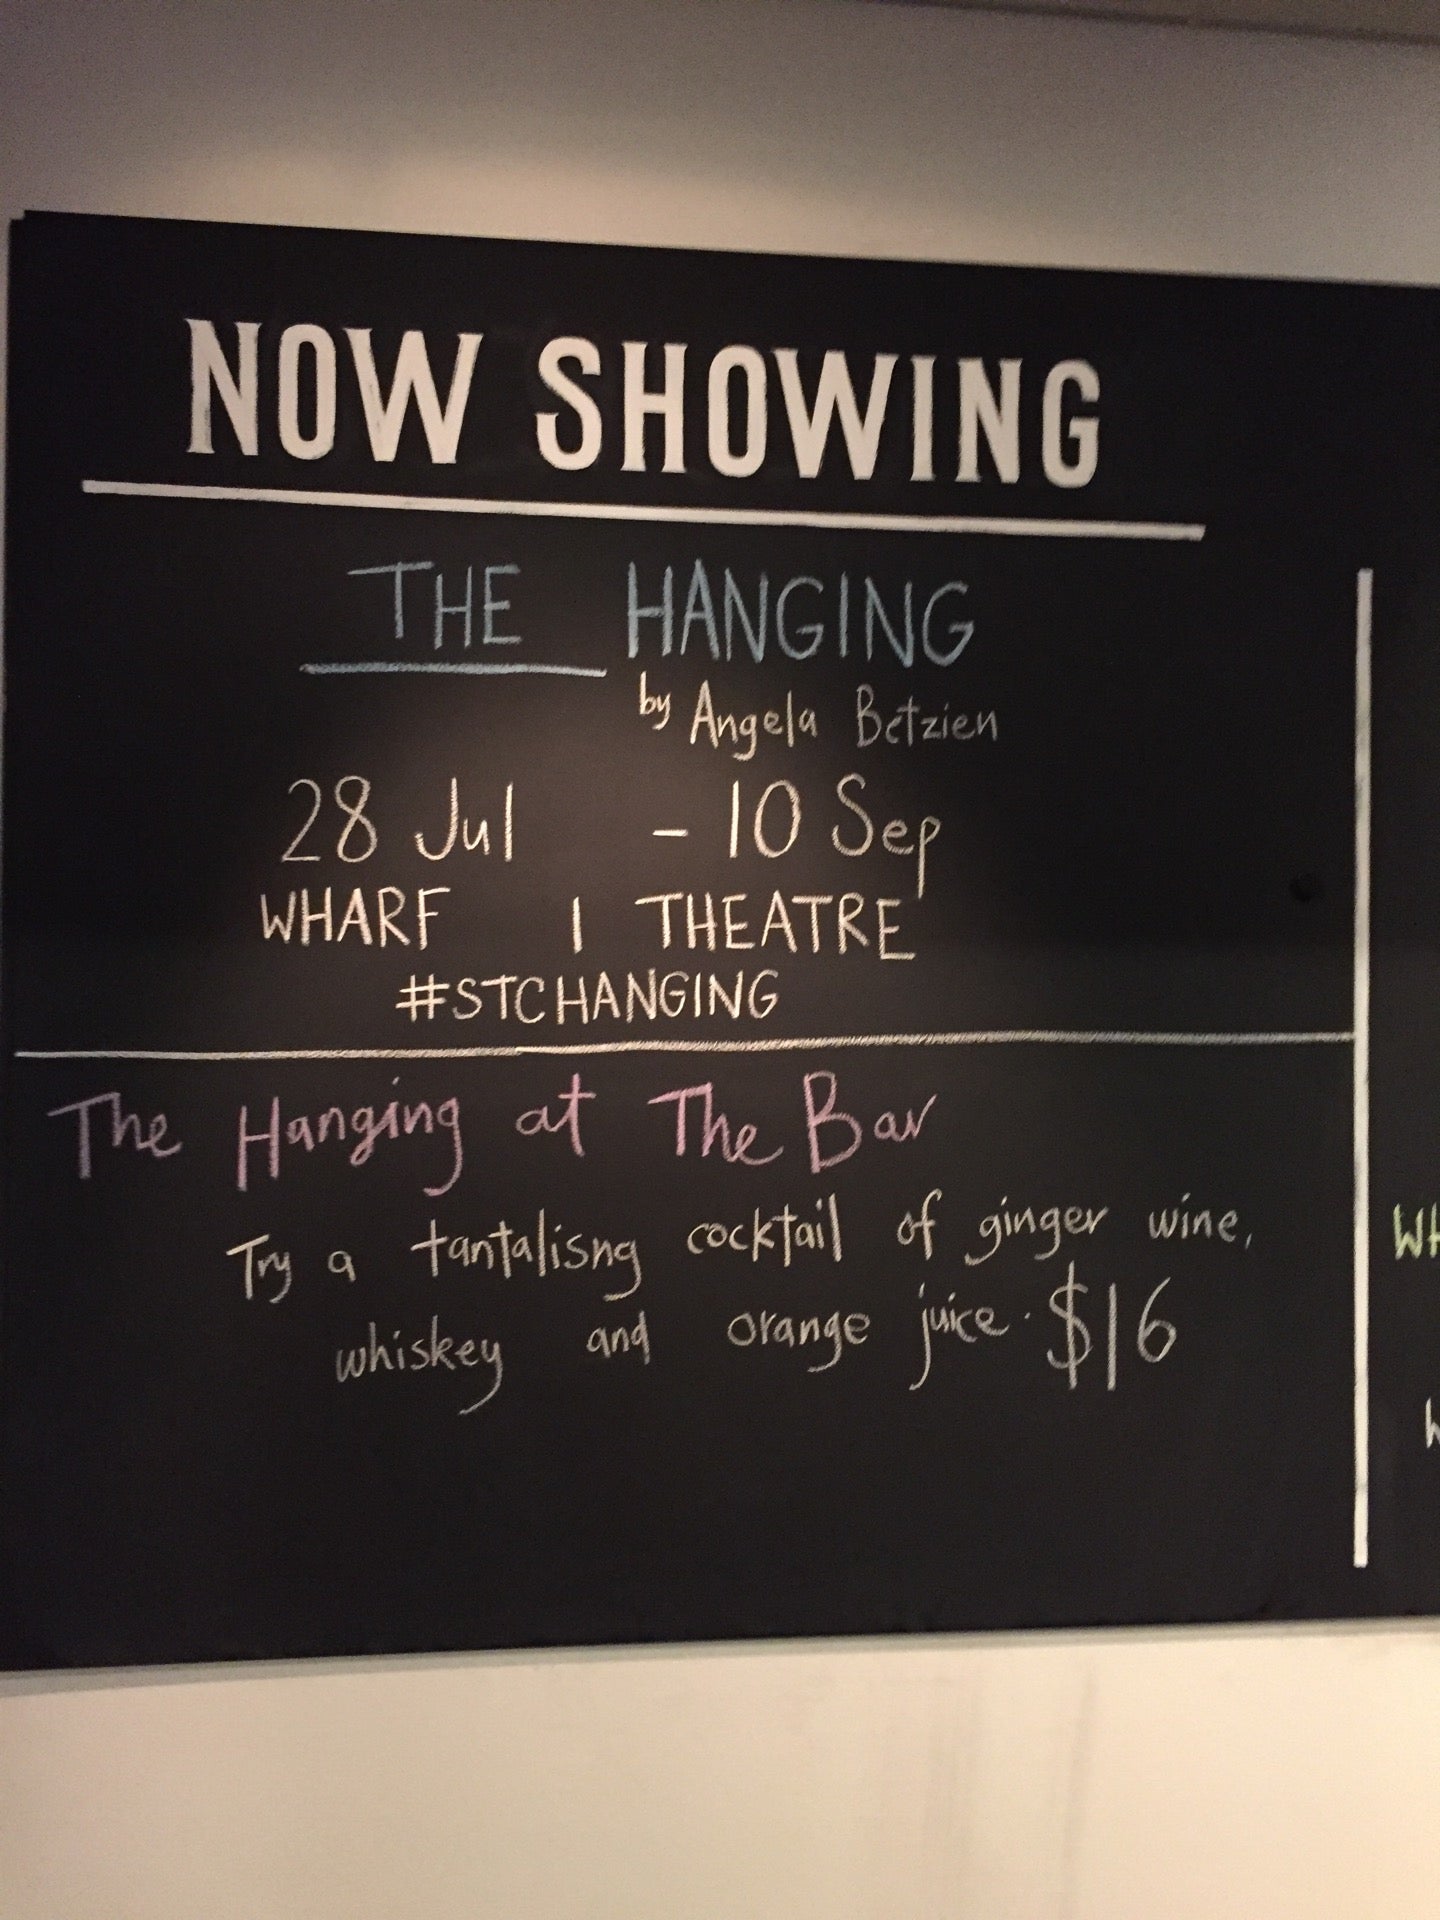 NOW SHOWING
THE HANGING
by Angela Betzien
28 Jul - 10 Sep
WHARF 1 THEATRE
#STCHANGING
The Hanging at The Bar
Try a tantalisng cocktail of ginger wine,
whiskey and orange juice. $16